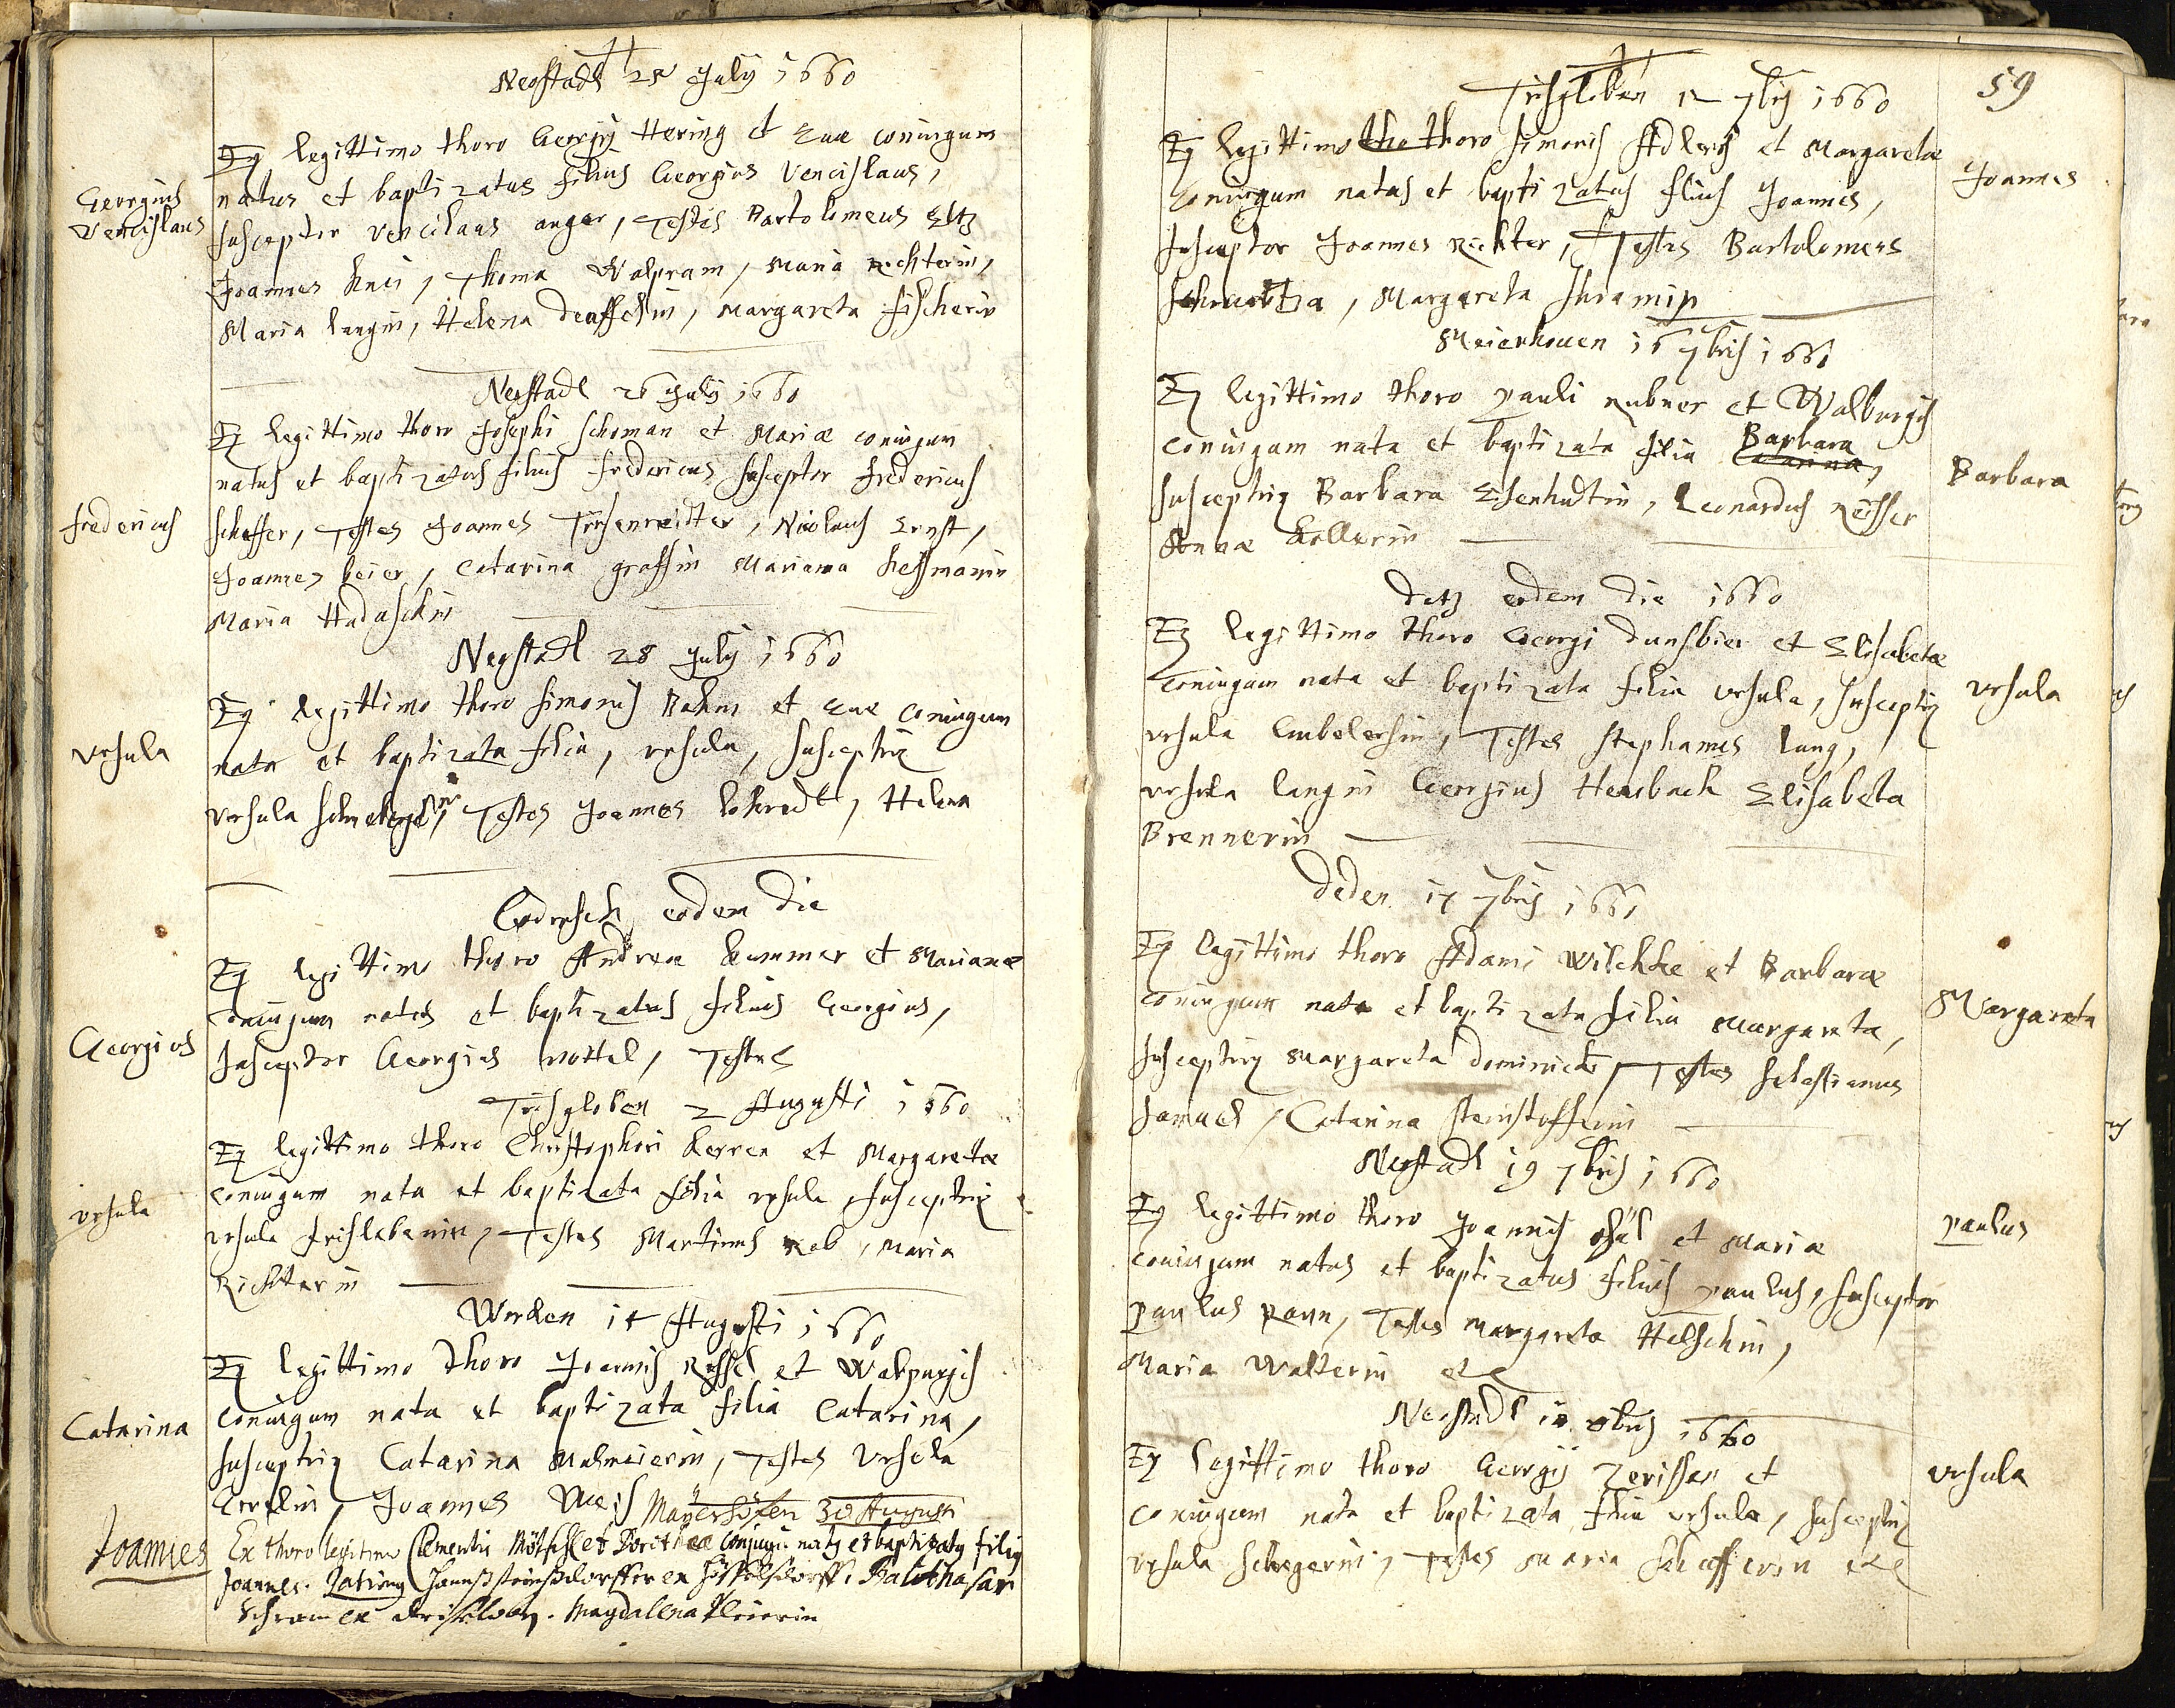 Neostadl 25 July 1660
Georgius
Vencislaus
Ex legittimo thoro Georgij Hering et Euae coniugum
natus et baptizatus filius Georgius Vencislaus,
susceptor Vencilaus anger, Testes Bartolomeus
Joannes Kneis, Thoma Walpram, Maria Richterin,
Maria langin, Helena Deuffelin, Margareta fischerin
Neostadl 26 July 1660
fredericus
Ex legittimo thoro Josephi Schoman et Mariae coniugum
natus et baptizatus filius fredericus susceptor fredericus
scheffer, Testes Joannes Tirsenreitter, Nicolaus Ernst,
Joannes beier, Catarina grassin Mariana hessmanin
Maria Hadaschin
Neostadl 28 July 1660
Vrsula
Ex legittimo thoro simonis Bohm et Euae coniugum
nata et baptizata filia, vrsula, susceptrix
vrsula Testes Joannes Helena
eodem die
Georgius
Ex legittimo thoro Andreae Kummer et Marianae
coniugum natus et baptizatus filius Georgius,
susceptor Georgius nottel, Testes
Trisgloben 2 Augusti 1660
vrsula
Ex legittimo thoro Christophori kerren et Margaretae
coniugum nata et baptizata filia vrsula susceptrix
vrsula Trislebenin, Testes Martinus Reb, Maria
Richterin
Worken 15 Augusti 1660
Catarina
Ex legittimo thoro Joannis Ressel et Walpurgis
coniugum nata et baptizata filia Catarina,
susceptrix Catarina Malmeierin, Testes Vrsula
Joannes
Mayerhöfen 30 Augusti
Joannes
Ex thoro legitimo Clementis et Dorotheae Conjugu naty et baptizaty filiy
Joannes. Hannß steinßdorffer ex Balthasar
Schram ex Magdalena Kleierin
59
Trisgloben 12 7bris 1660
Joannes
Ex legittimo tho thoro simonis Adlers et Margaretae
coniugum natus et baptizatus filius Joannes,
susceptor Joannes Richter, Testes Bartolomeus
Margareta
Meierhouen 15 7bris 1660
Barbara
Ex legittimo thoro pauli nubner et Walburgis
coniugum nata et baptizata filia Barbara Catarina,
susceptrix Barbara Eisenhutin, Leonardus Reisser
Annae Kollerin
eodem die 1660
vrsula
Ex legittimo thoro Georgi dunsbier et Elisabetae
coniugum nata et baptizata filia vrsula, susceptrix
vrsula Testes stephanus lang,
vrsula langin Georgius Heusbach Elisabeta
Brennerin
Deden 17 7bris 1660
Margareta
Ex legittimo thoro Adami Wilchke et Barbarae
coniugum nata et baptizata filia Margareta,
susceptrix Margareta Dominicki, Testes sebastianus
samuel, Catarina steinstofferin
Neostadl 19 7bris 1660
paulus
Ex legittimo thoro Joannis et Mariae
coniugum natus et baptizatus filius paulus, susceptor
paulus paun, Testes Margareta Helschin,
Maria Walterin etc
Neostadl 10 8bris 1660
vrsula
Ex legittimo thoro Georgij Zerissen et
coniugum nata et baptizata filia vrsula, susceptrix
vrsula schwegerin, Testes Maria Schefferin etc